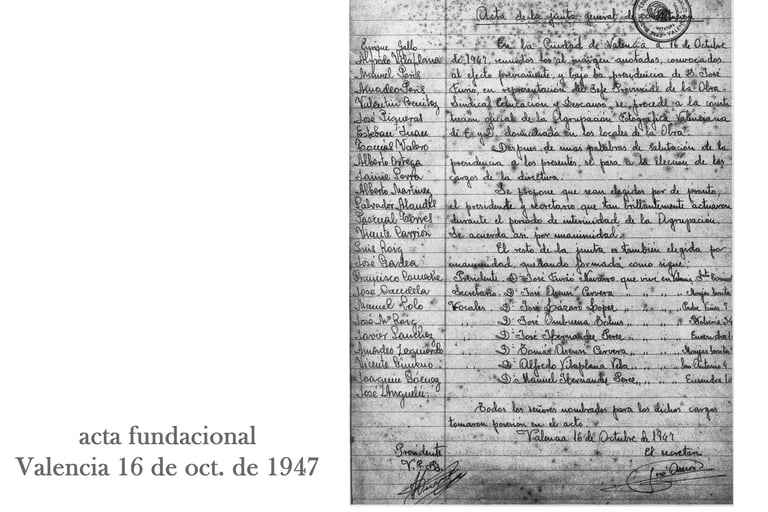 Acta de la junta general de
Enrique Gallo
Alfredo Vilaplana
Manuel Peris
Amadeo Peris
Valentin Benitez
José Pigueras
Esteban Juan
Tomás Valero
Alberto Ortega
Jaime Serra
Alberto Martinez
Salvador
Pascual Torres
Vicente Carrión
Luis Roig
José Gadea
Francisco
José Candela
Manuel Polo
José Mª Roig
Javier Sanchez
Amadeo Izquierdo
Vicente Gimeno
Joaquin
José
En la Ciudad de Valencia a 16 de Octubre
de 1947, reunidos los al margen anotados, convocados
al efecto previamente, y bajo la presidencia de D. José
Furió, en representación del Jefe Provincial de la Obra
Sindical Educacion y Descanso, se procede a la consti-
tución oficial de la Agrupación Fotográfica Valenciana
de E. y D. domiciliada en los locales de la Obra.
Despues de unas palabras de salutación de la
presidencia a los presentes, se pasa a la elección de los
cargos de la directiva.
Se propone que sean elegidos por de pronto,
el presidente y secretario que tan brillantemente actuaron
durante el periodo de interinidad de la Agrupación.
Se acuerda asi por unanimidad.
El resto de la junta es tambien elegida por
unanimidad quedando formada como sigue:
Presidente D. José Furió Navarro que vive en Valencia
Secretario D. José Asensi Cervera " " " Monjas
Vocales D. José Lázaro Lopez " " "
" D. José " " " 34
" D. José Hernandez Perez " " "
" D. Asensi Cervera " " " Monjas
" D. Alfredo Vilaplana Vila " " " San Antonio 4
" D. Manuel Hernandez Perez " " "
Todos los señores nombrados para los dichos cargos
tomaron posesión en el acto.
Valencia 16 de Octubre de 1947
Presidente
El secretario
acta fundacional
Valencia 16 de oct. de 1947